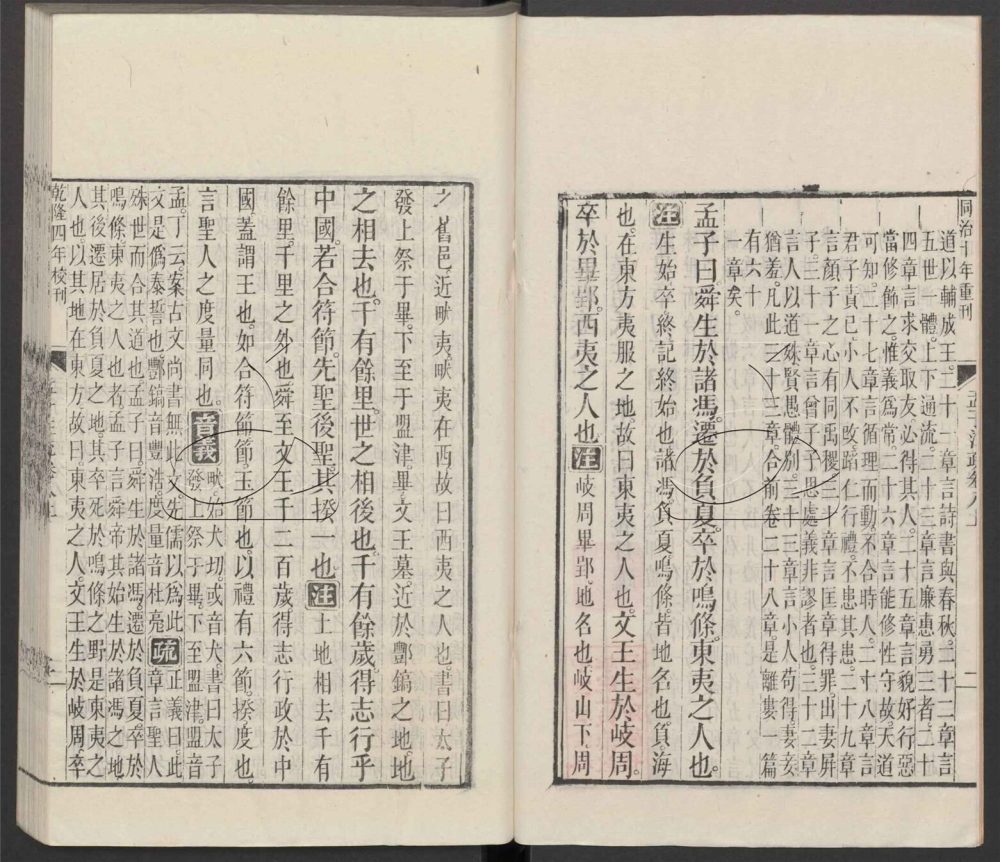 同治十年重刊
道以輔成王。二十一章言詩書與春秋。二十二章言
五世一體。上下通流。二十三章言廉惠勇三者。二十
四章言求交取友。必得其人。二十五章言貌好行惡
當修飾之。惟義爲常。二十六章言能修性守故。天道
可知。二十七章言循理而動。不合時人。二十八章言
君子責己。小人不改。蹈仁行禮。不患其患。二十九章
言顏子之心有同禹稷。三十章言匡章得罪。出妻屏
子。三十一章言曾子子思處義非謬者也。三十二章
言人以道殊賢愚體別。三十三章言小人苟得妻妾
猶羞。凡此三十三章。合前卷二十八章。是離婁一篇
有六十
一章矣。
孟子曰。舜生於諸馮。遷於負夏。卒於鳴條。東夷之人也。
注生始卒終記終始也。諸馮。負夏。鳴條。皆地名也。負海
也。在東方夷服之地。故曰東夷之人也。文王生於岐周。
卒於畢郢。西夷之人也。注岐周畢郢。地名也。岐山下周
之舊邑。近畎夷。畎夷在西。故曰西夷之人也。書曰。太子
發上祭于畢。下至于盟津。畢文王墓。近於酆鎬之地。地
之相去也。千有餘里。世之相後也。千有餘歲。得志行乎
中國。若合符節。先聖後聖。其揆一也。注土地相去千有
餘里。千里之外也。舜至文王千二百歲。得志行政於中
國。蓋謂王也。如合符節。節。玉節也。以禮有六節。揆度也。
言聖人之度量同也。音義畎始犬切。或音犬。書曰太子
發上祭于畢。下至盟津。盟音
孟。丁云。案古文尚書無此文。先儒以爲此
文是僞泰誓也。酆鎬音豐浩。度量音杜亮。疏正義曰。此
章言聖人
殊世而合其道也。孟子曰。舜生於諸馮。遷於負夏。卒於
鳴條。東夷之人也者。孟子言舜帝其始生於諸馮之地
其後遷居於負夏之地。其卒死於鳴條之野。是東夷之
人也。以其地在東方。故曰東夷之人。文王生於岐周。卒
乾隆四年校刊